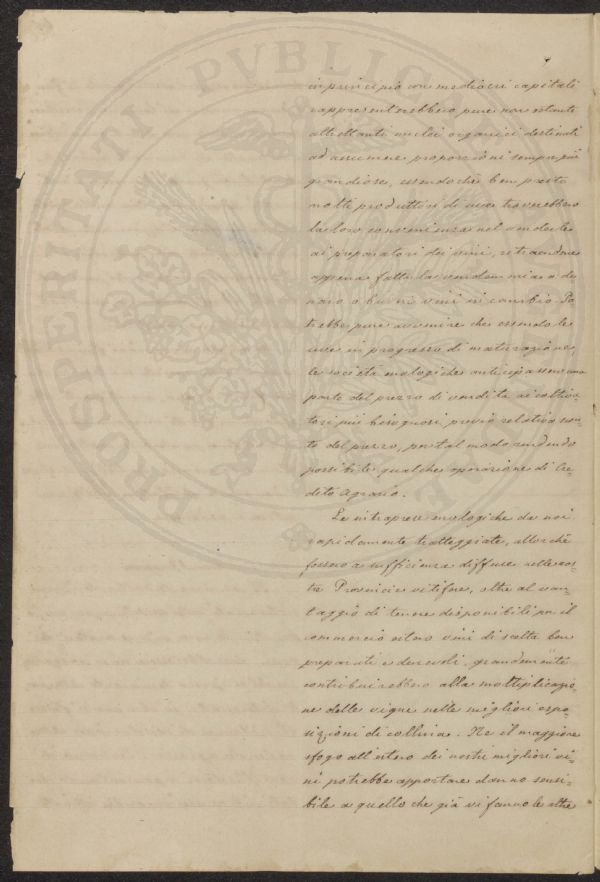 in principio con mediocri capitali
rappresenterebbero pure non ostante
altrettanti nuclei organici destinati
ad assumere proporzioni sempre più
grandiose, essendochè ben presto
molti produttori di uve troverebbero
la loro convenienza nel venderle
ai preparatori dei vini, ritraendone
appena fatta la vendemmia o de
naro o buoni vini in cambio. Po
trebbe pure avvenire che essendo le
uve in progresso di maturazione,
le società enologiche anticipassero una
parte del prezzo di vendita ai coltiva
tori più bisognosi previo relativo scon-
to del prezzo, per tal modo rendendo
possibile qualche operazione di Cre-
dito Agrario.
Le intraprese enologiche da noi
rapidamente tratteggiate, allorchè
fossero a sufficienza diffuse nelle nos-
tre Provincie vitifere, oltre al van-
taggio di tenere disponibili per il
commercio estero vini di scelta ben
preparati e durevoli, grandemente
contribuirebbero alla moltiplicazio-
ne delle vigne nelle migliori espo-
sizioni di collina. Nè il maggiore
sfogo all'estero dei nostri migliori vi-
ni potrebbe apportare danno sensi-
bile a quello che già vi fanno le altre
PROSPERITATI PVBLICAE